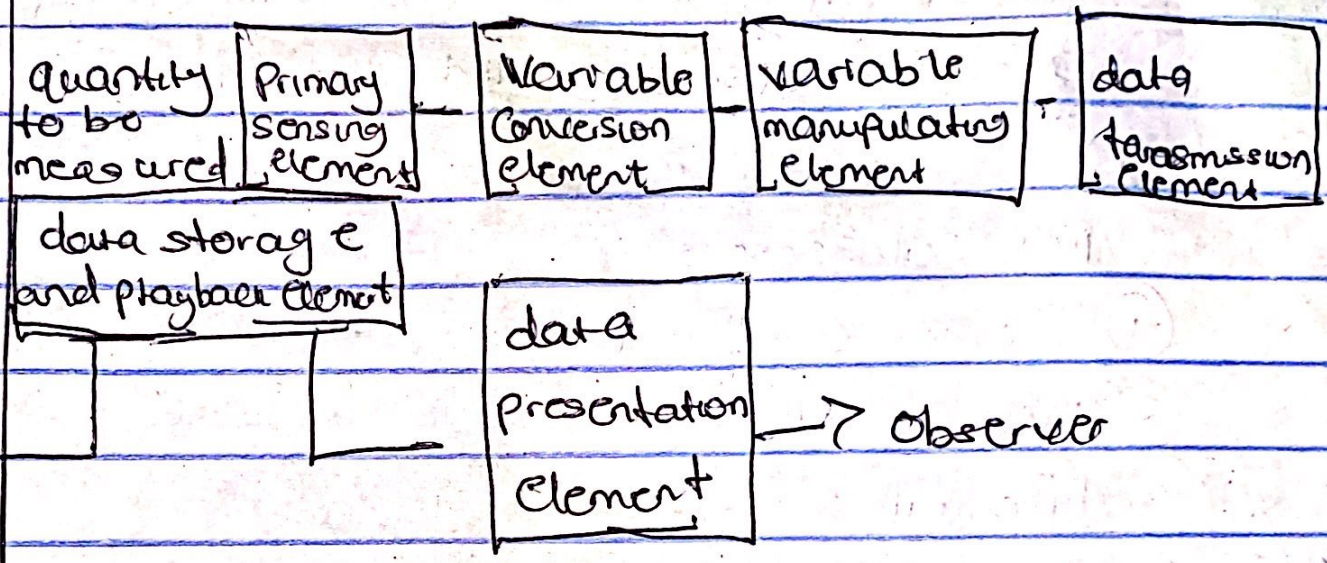 quantity
to be
measured
Primary
sensing
element
Variable
Conversion
element
variable
manipulating
element
data
transmission
element
data storage
and playback element
data
presentation
element
Observer